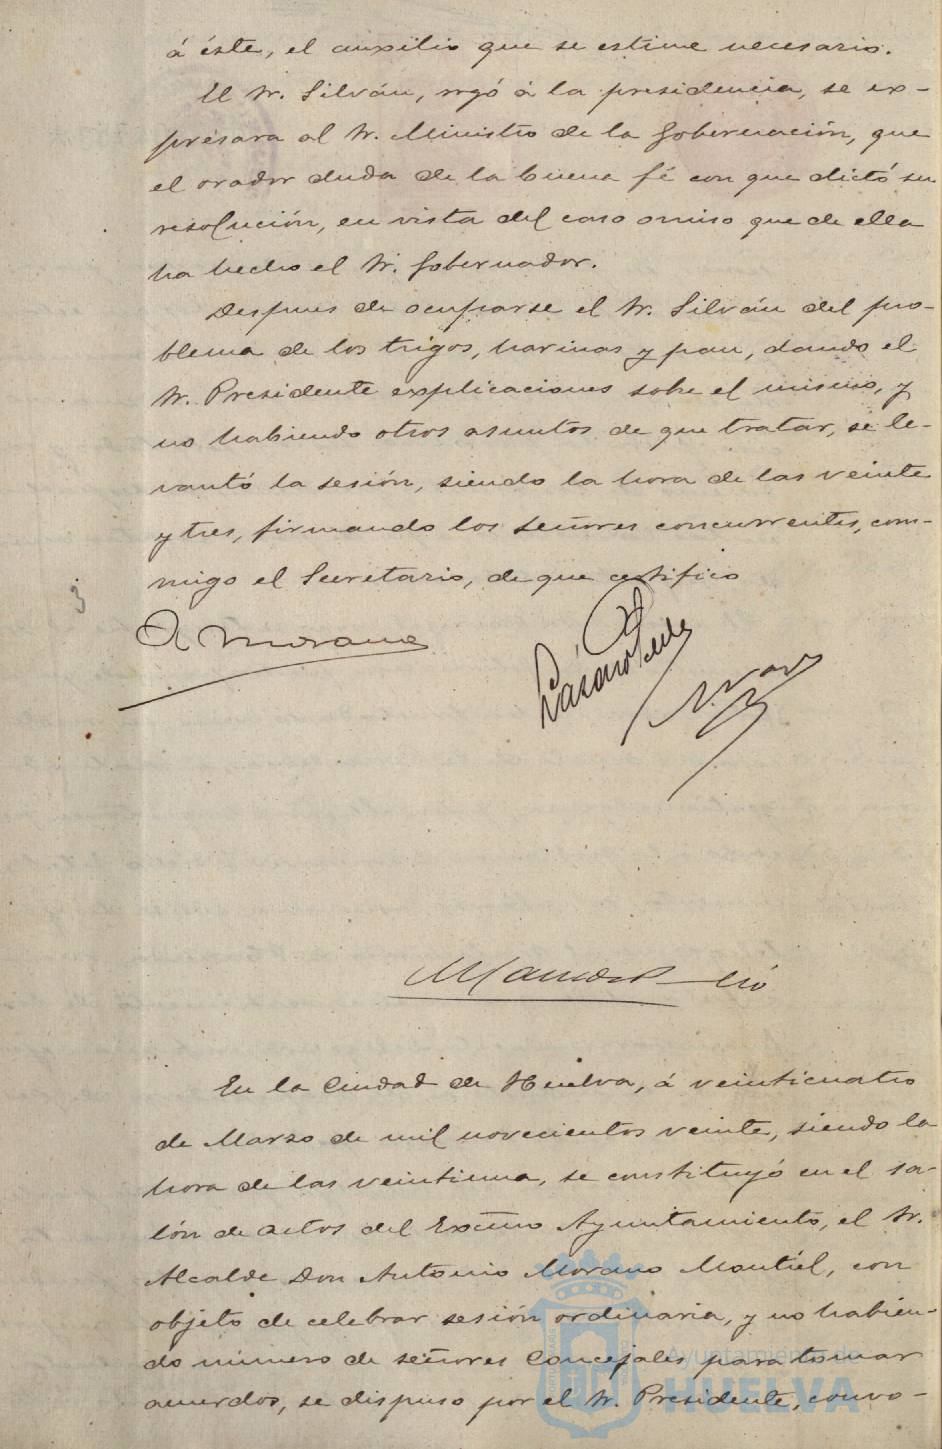 á éste, el auxilio que se estime necesario.
El Sr. Silván, rogó á la presidencia, se ex-
presara al Sr. Ministro de la Gobernación, que
el orador duda de la buena fé con que dictó su
resolución, en vista del caso omiso que de ella
ha hecho el Sr. Gobernador.
Despues de ocuparse el Sr. Silván del pro-
blema de los trigos, harinas y pan, dando el
Sr. Presidente explicaciones sobre el mismo, y
no habiendo otros asuntos de que tratar, se le-
vantó la sesión, siendo la hora de las veinte
y tres, firmando los señores concurrentes, con-
migo el Secretario, de que certifico
A Morano
En la Ciudad de Huelva, á veinticuatro
de Marzo de mil novecientos veinte, siendo la
hora de las veintiuna, se constituyó en el sa-
lón de actos del Excmo Ayuntamiento, el Sr.
Alcalde Don Antonio Morano Montiel, con
objeto de celebrar sesión ordinaria, y no habien-
do número de señores Concejales para tomar
acuerdos, se dispuso por el Sr. Presidente, convo-
Ayuntamiento de
HUELVA